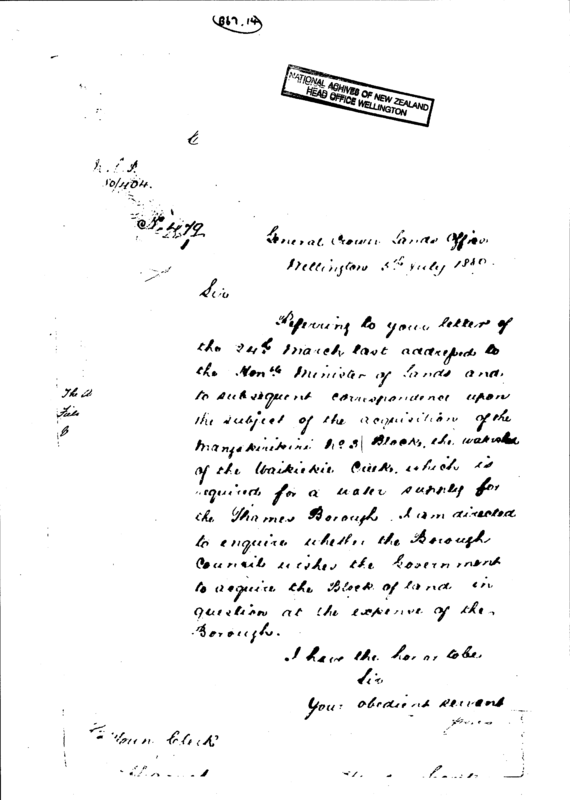 B67.14
NATIONAL ACHIVES OF NEW ZEALAND
HEAD OFFICE WELLINGTON
80/404.
No. 479
General Crown Lands Office
Wellington 5th July 1880.
Sir
Referring to your letter of
the 24th March last addressed to
the Honble Minister of Lands and
to subsequent correspondence upon
the subject of the acquisition of the
No 3 Block, the watershed
of the Waikiekie Creek, which is
required for a water supply for
the Thames Borough. I am directed
to enquire whether the Borough
Council wishes the Government
to acquire the Block of land in
question at the expense of the
Borough.
I have the honor to be
Sir
Your obedient servant
Town Clerk